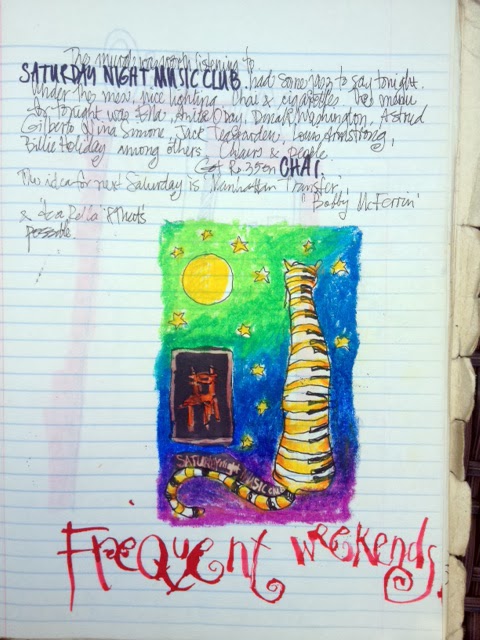 The mural group listening to
SATURDAY NIGHT MUSIC CLUB. had some jazz to say tonight.
Under the moon, nice lighting. Chai & cigarettes. The menu
for tonight was Ella, Anita O'Day, Dinah Washington, Astrud
Gilberto, Nina Simone, Jack Teagarden, Louis Armstrong,
Billie Holiday among others. Chairs & people
Got Rs 350 on CHAI.
The idea for next Saturday is 'Manhattan Transfer',
'Bobby McFerrin'
& 'Acapella' & that's
possible.
SATURDAY night MUSIC CLUB
Frequent weekends.